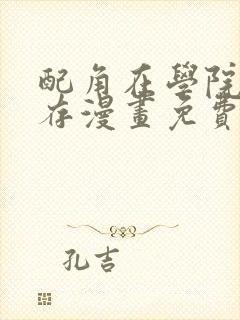 配角在學院
存漫畫免費
孔吉